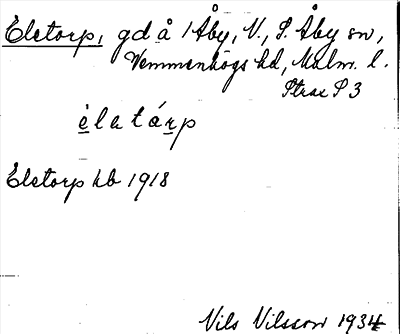 Eletorp, gd å 1 Åby, V., S. Åby sn,
Vemmenhögs hd, Malm. l.
Strax S 3
èlatárp
Eletorp hb 1918
Nils Nilsson 1934